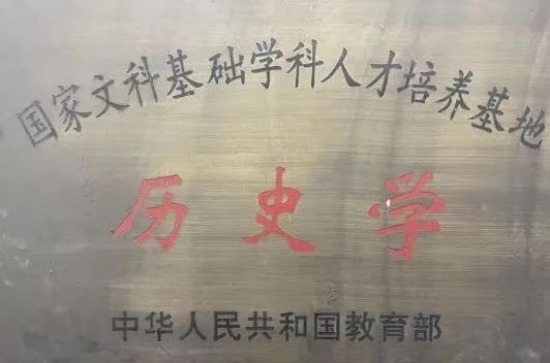 国家文科基础学科人才培养基地
历史学
中华人民共和国教育部